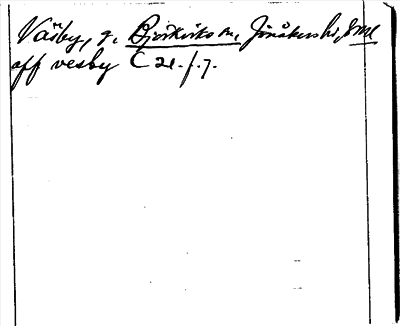 Väsby, g, Björkviks sn, Jönåkers hd, Sml
off vesby C 21. f. 7.